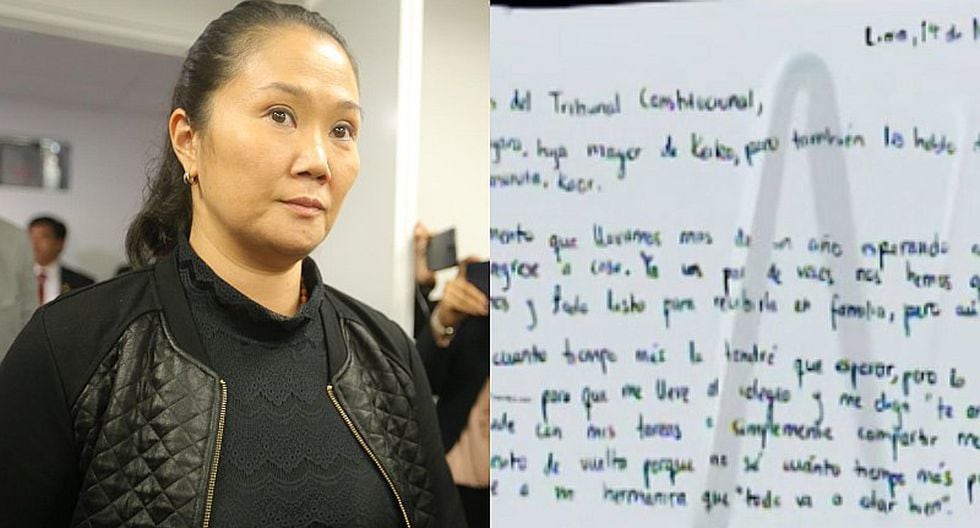 Lima, 14 de
del Tribunal Constitucional,
hija mayor de Keiko, pero también le hablo
que llevamos más de un año esperando
a casa. Ya un par de veces nos hemos
y todo listo para recibirla en familia, pero
cuanto tiempo más la tendré que esperar, pero lo
para que me lleve al colegio y me diga "te
con mis tareas o simplemente compartir
de vuelta porque no sé cuánto tiempo más
a mi hermanita que "todo va a estar bien".